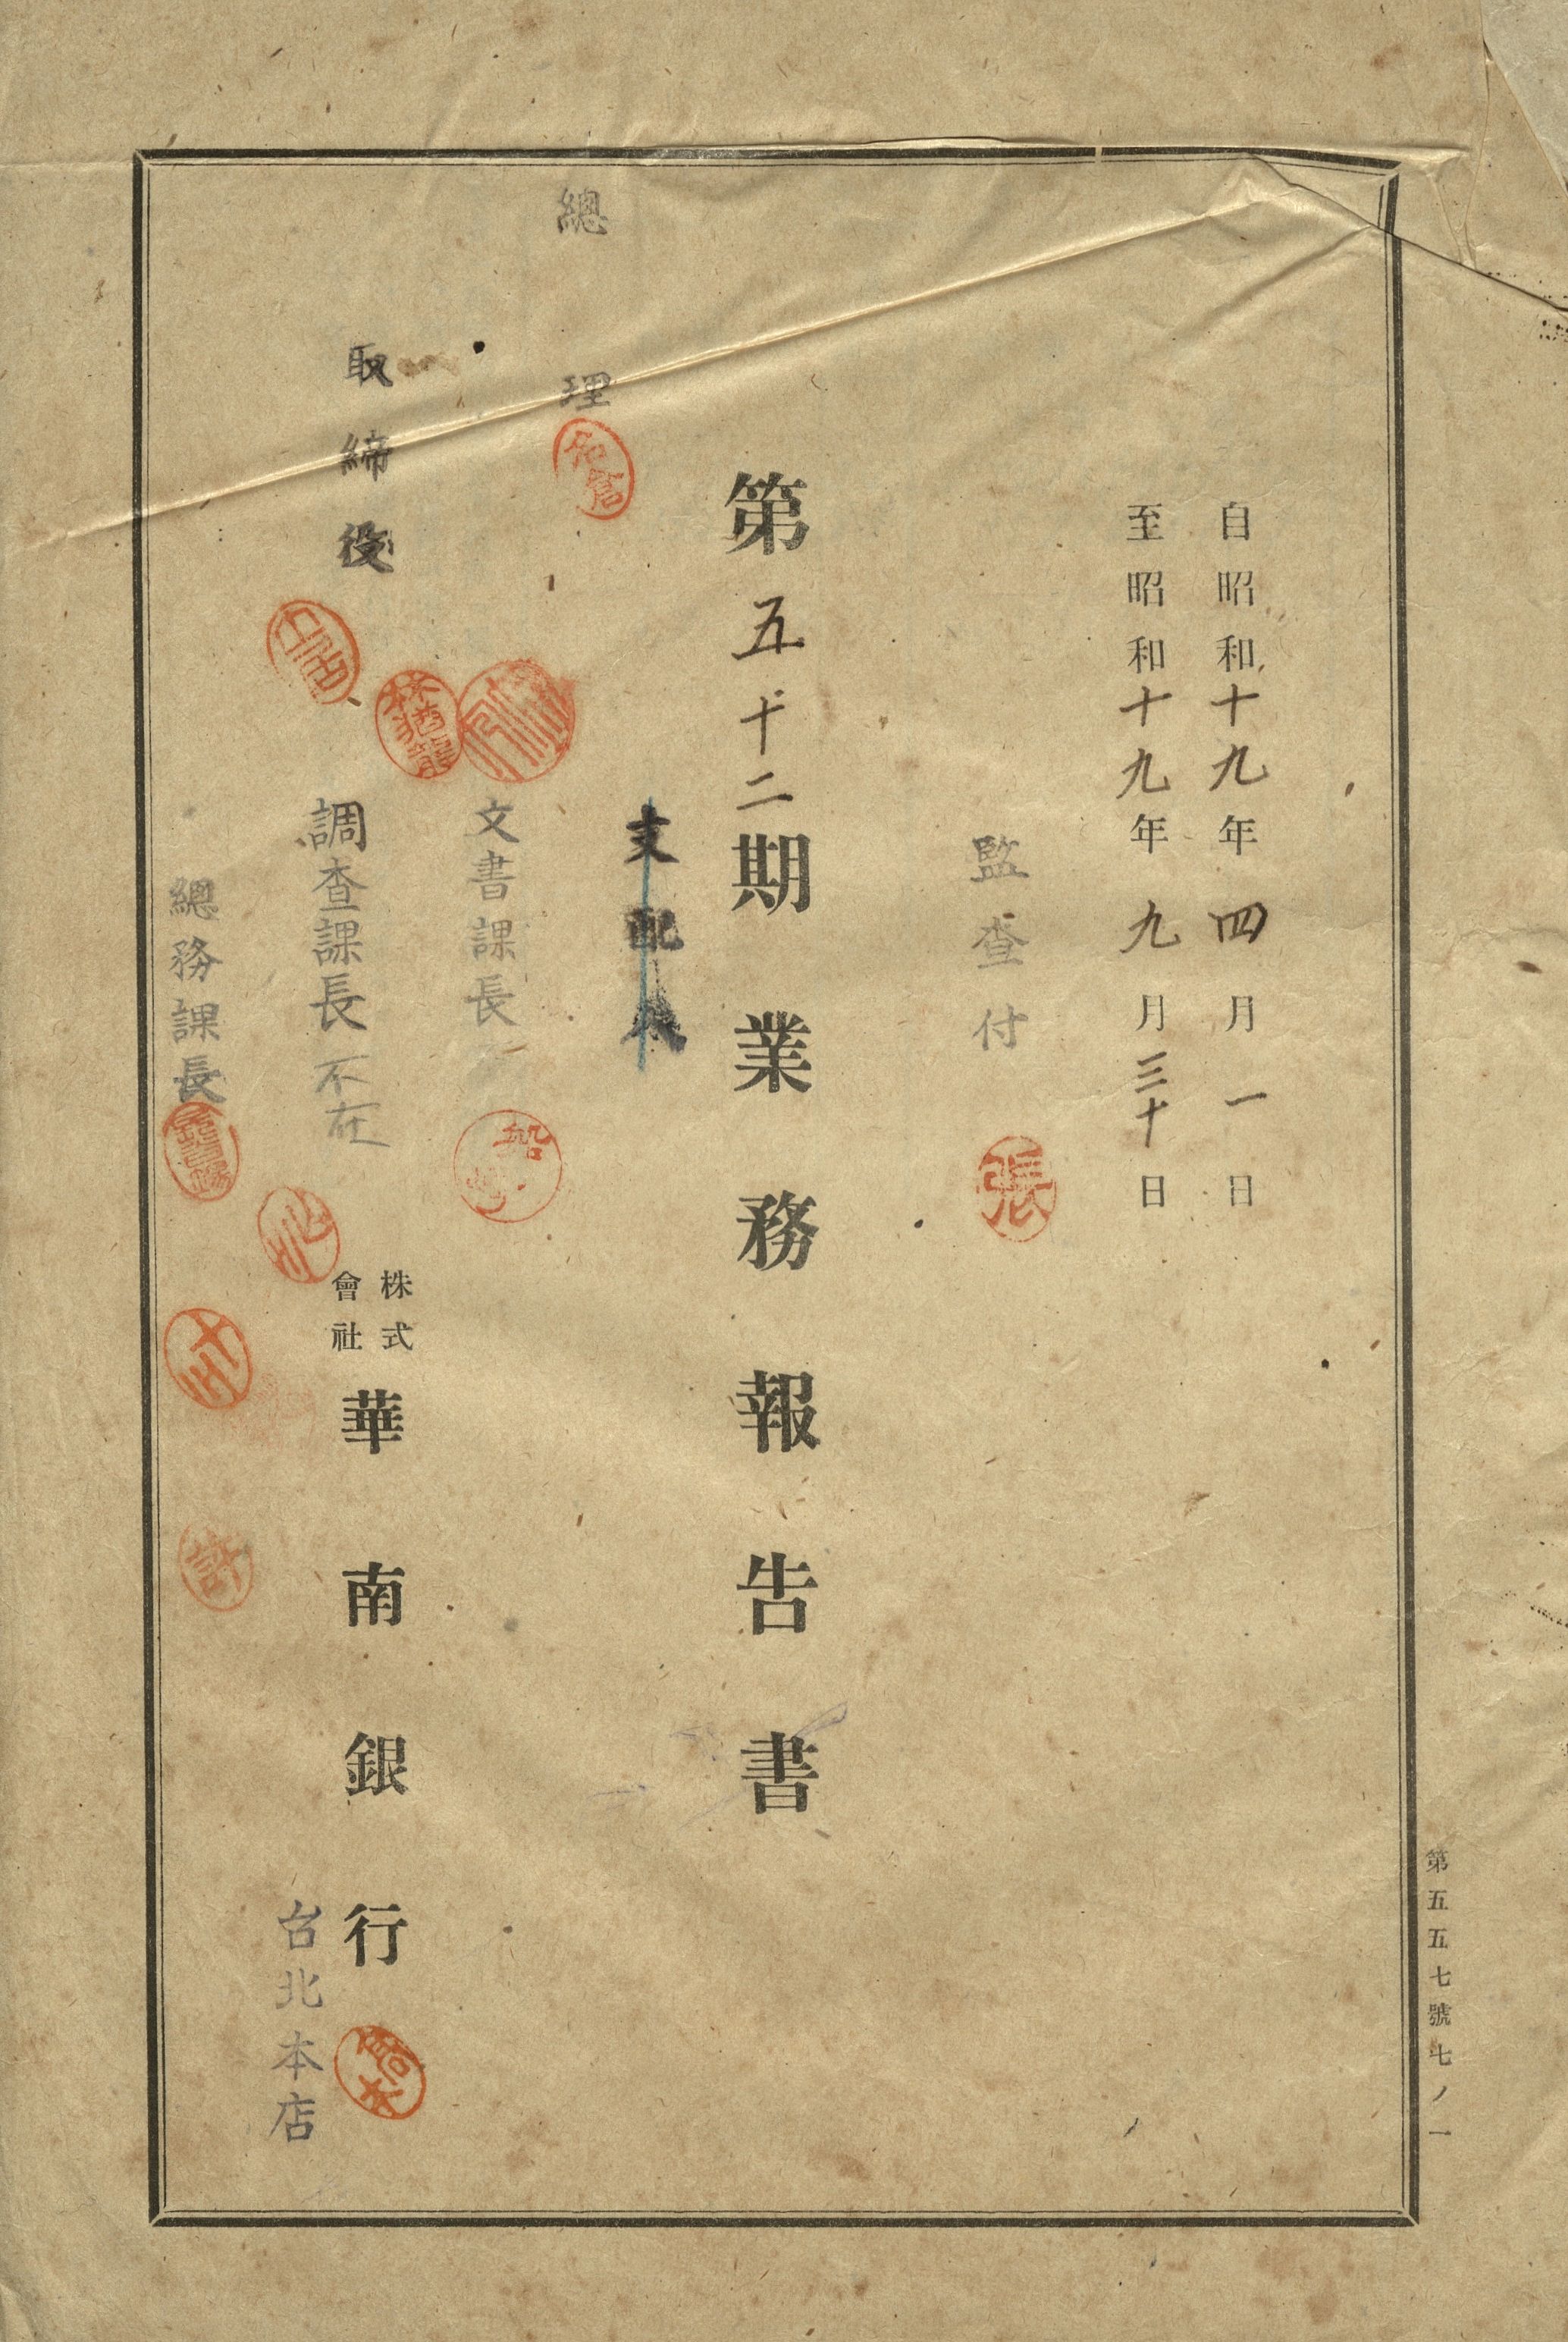 自昭和十九年四月一日
至昭和十九年九月三十日
監查付
張
第五十二期業務報告書
支配人
總理
名倉
文書課長
取締役
林猶龍
調查課長不在
總務課長
許
株式
會社
華南銀行
台北本店
第五五七號七ノ一